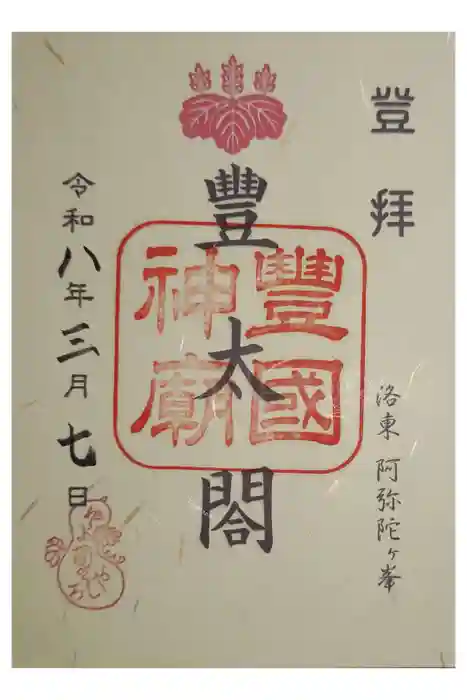 登拝
洛東 阿弥陀ヶ峯
豐太閤
豐國
神廟
令和八年三月七日